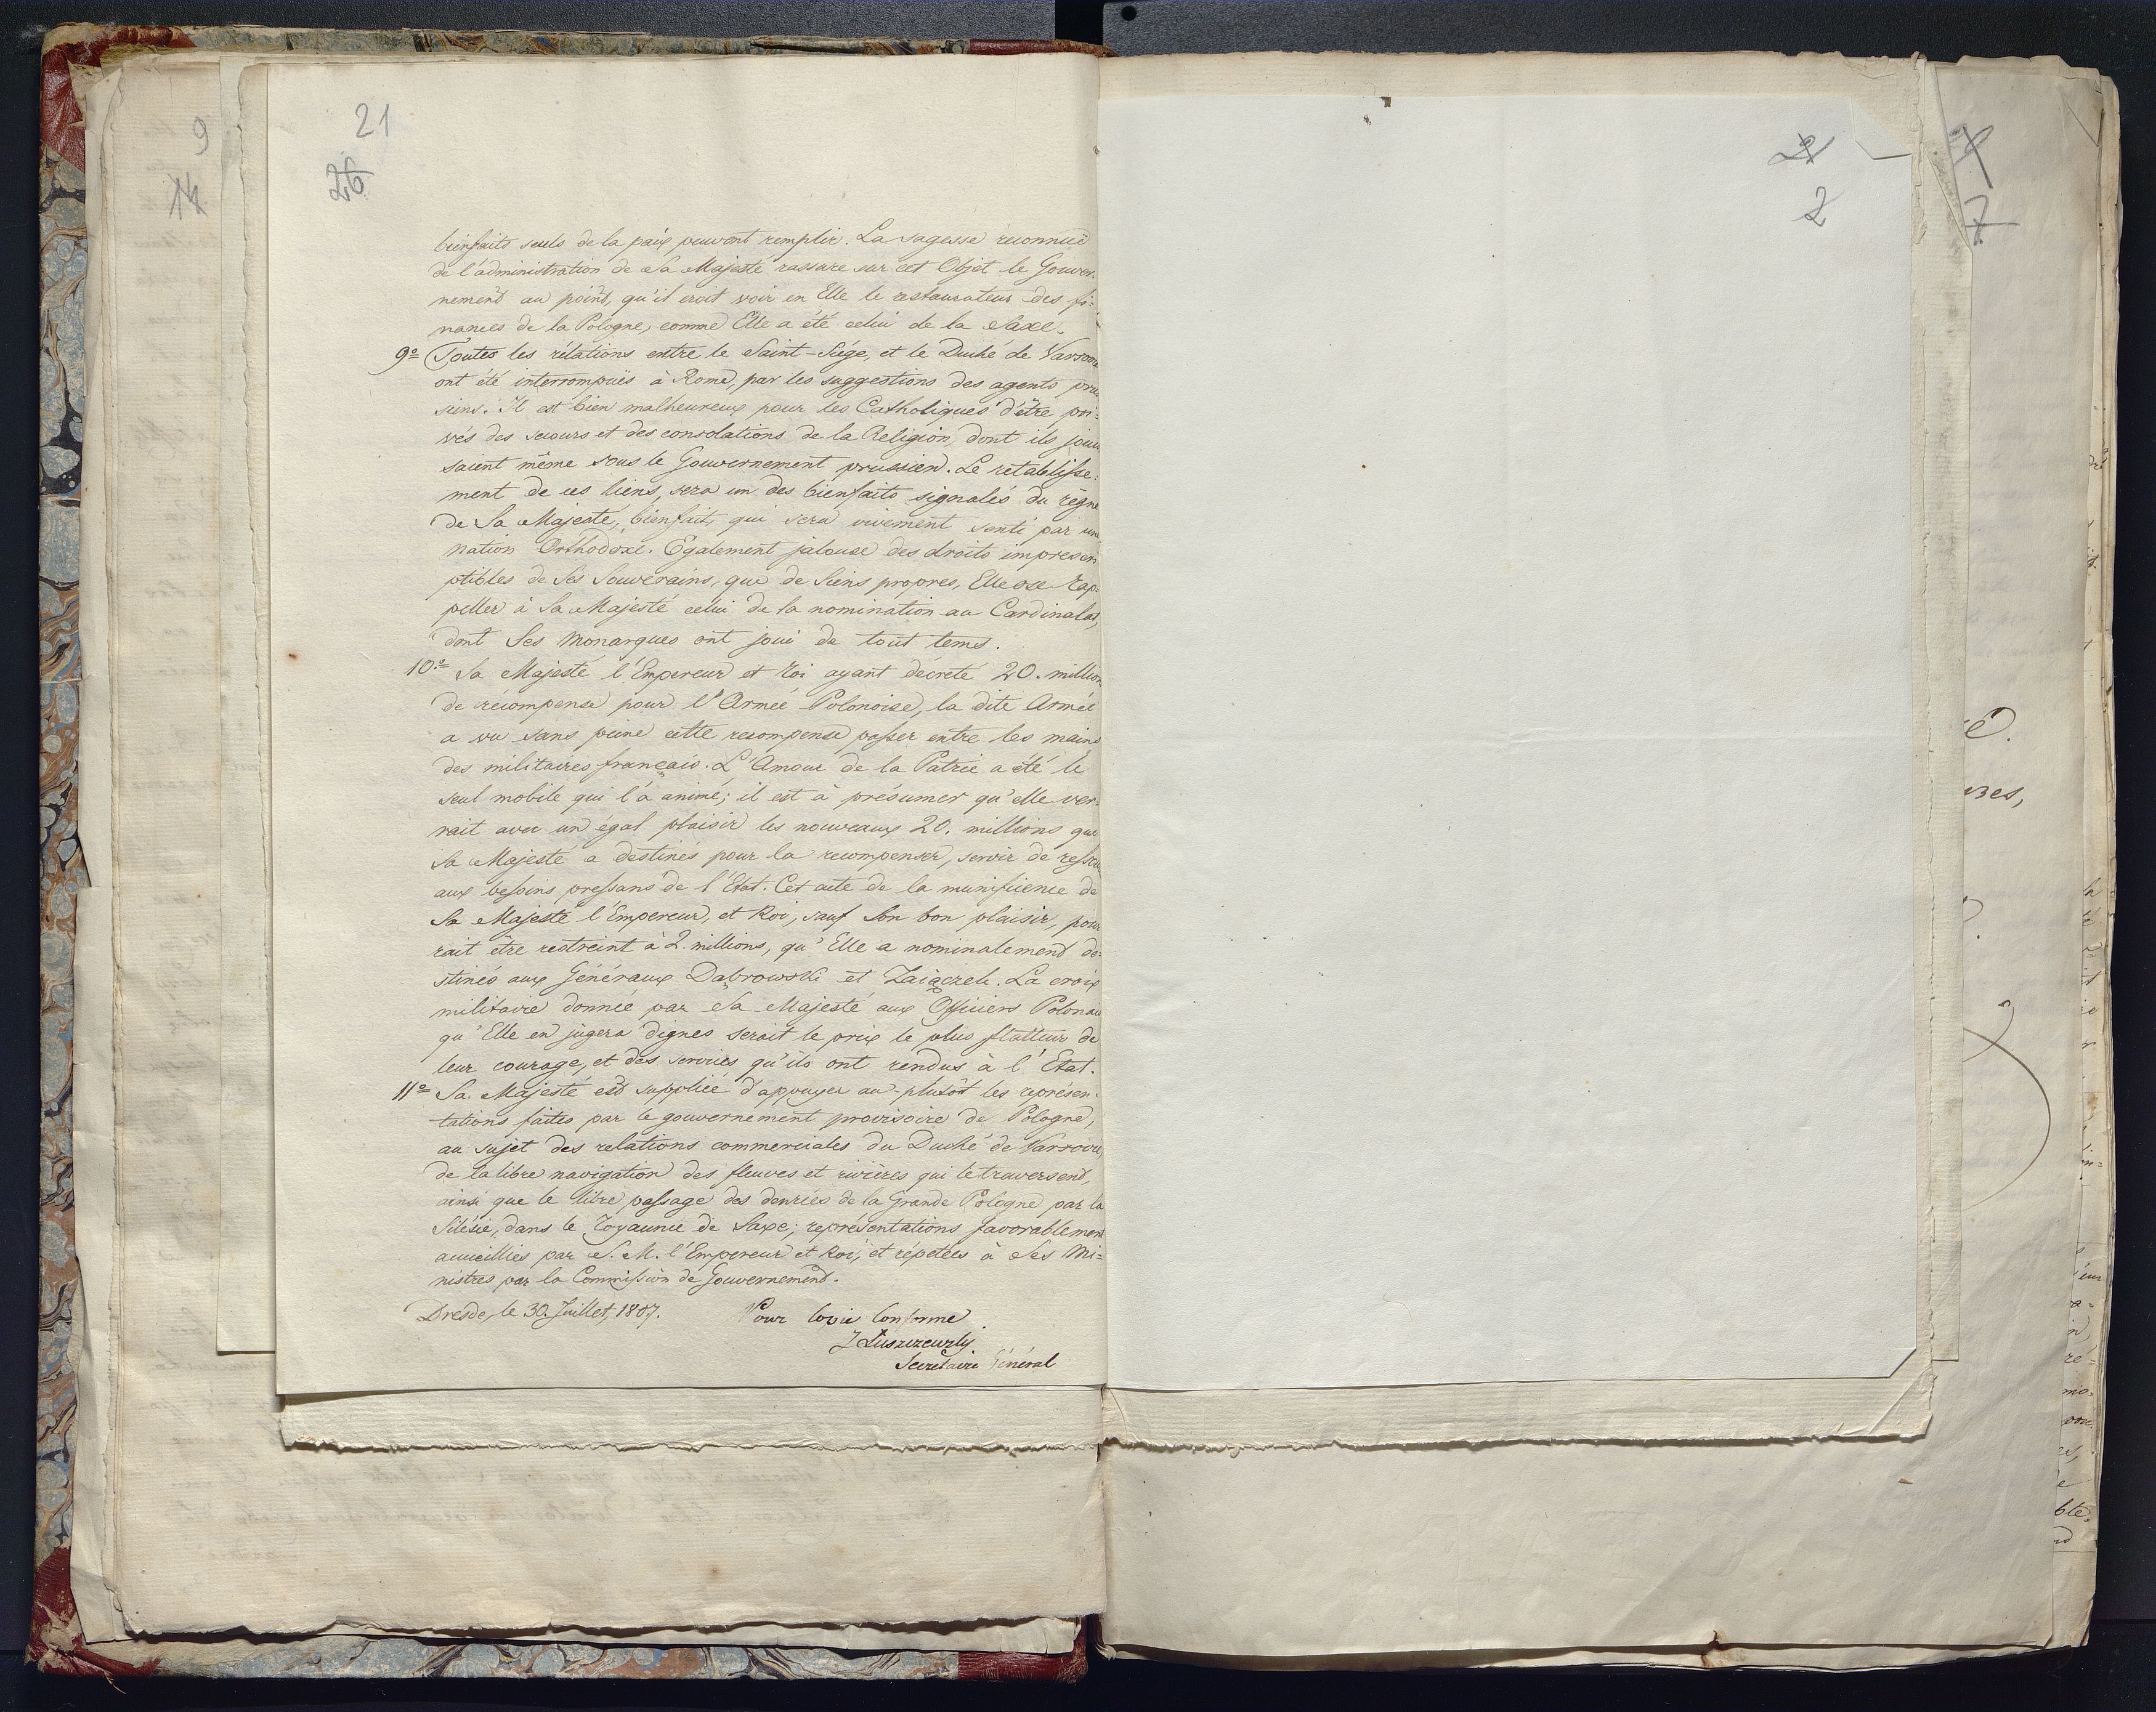 21
26
9
14
bienfaits seuls de la paix peuvent remplir. La sagesse reconnuë
de l'administration de Sa Majesté rassure sur cet Objet le Gouver-
nement au point, qu'il croit voir en Elle le restaurateur des fi=
nances de la Pologne, comme Elle a été celui de la Saxe.
9º Toutes les rélations entre le Saint-Siége, et le Duché de Varsovie
ont été interrompuës à Rome, par les suggestions des agents prus
siens. Il est bien malheureux pour les Catholiques d'être pri=
vés des secours et des consolations de la Religion, dont ils jouis
saient même sous le Gouvernement prussien. Le retablisse=
ment de ces liens, sera un des bienfaits signalés du règne
de Sa Majesté, bienfait, qui sera vivement senti par une
nation Orthodoxe. Egalement jalouse des droits imprescri
ptibles de Ses Souverains, que de Siens propres, Elle ose rap=
peller à Sa Majesté celui de la nomination au Cardinalat,
dont Ses Monarques ont joui de tout tems.
10º Sa Majesté l'Empereur et Roi ayant décreté 20. millions
de récompense pour l'Armée Polonoise, la dite Armée
a vu sans peine cette recompense passer entre les mains
des militaires français. L'Amour de la Patrie a été le
seul mobile qui l'a animé; il est à présumer qu'elle ver-
rait avec un égal plaisir les nouveaux 20. millions que
Sa Majesté a destinés pour la recompenser, servir de resso
aux besoins pressans de l'Etat. Cet acte de la munificence de
Sa Majesté l'Empereur, et Roi, sauf Son bon plaisir, pour
rait être restreint à 2. millions, qu'Elle a nominalement de=
stinés aux Généraux Dąbrowski et Zaiączek. La croix
militaire donnée par Sa Majesté aux Officiers Polonais
qu'Elle en jugera dignes serait le prix le plus flatteur de
leur courage, et des services qu'ils ont rendus à l'Etat.
11º Sa Majesté est suppliée d'appuyer au-plutôt les représen-
tations faites par le gouvernement provisoire de Pologne,
au sujet des relations commerciales du Duché de Varsovie,
de la libre navigation des fleuves et rivières qui le traversent,
ainsi que le libre passage des denrées de la Grande Pologne par la
Silésie, dans le Royaume de Saxe; représentations favorablement
accueillies par S. M. l'Empereur et Roi, et répetées à Ses Mi=
nistres par la Commission de Gouvernement.
Dresde, le 30. Juillet, 1807.
Pour Copie Conforme
Secretaire Général
2
7